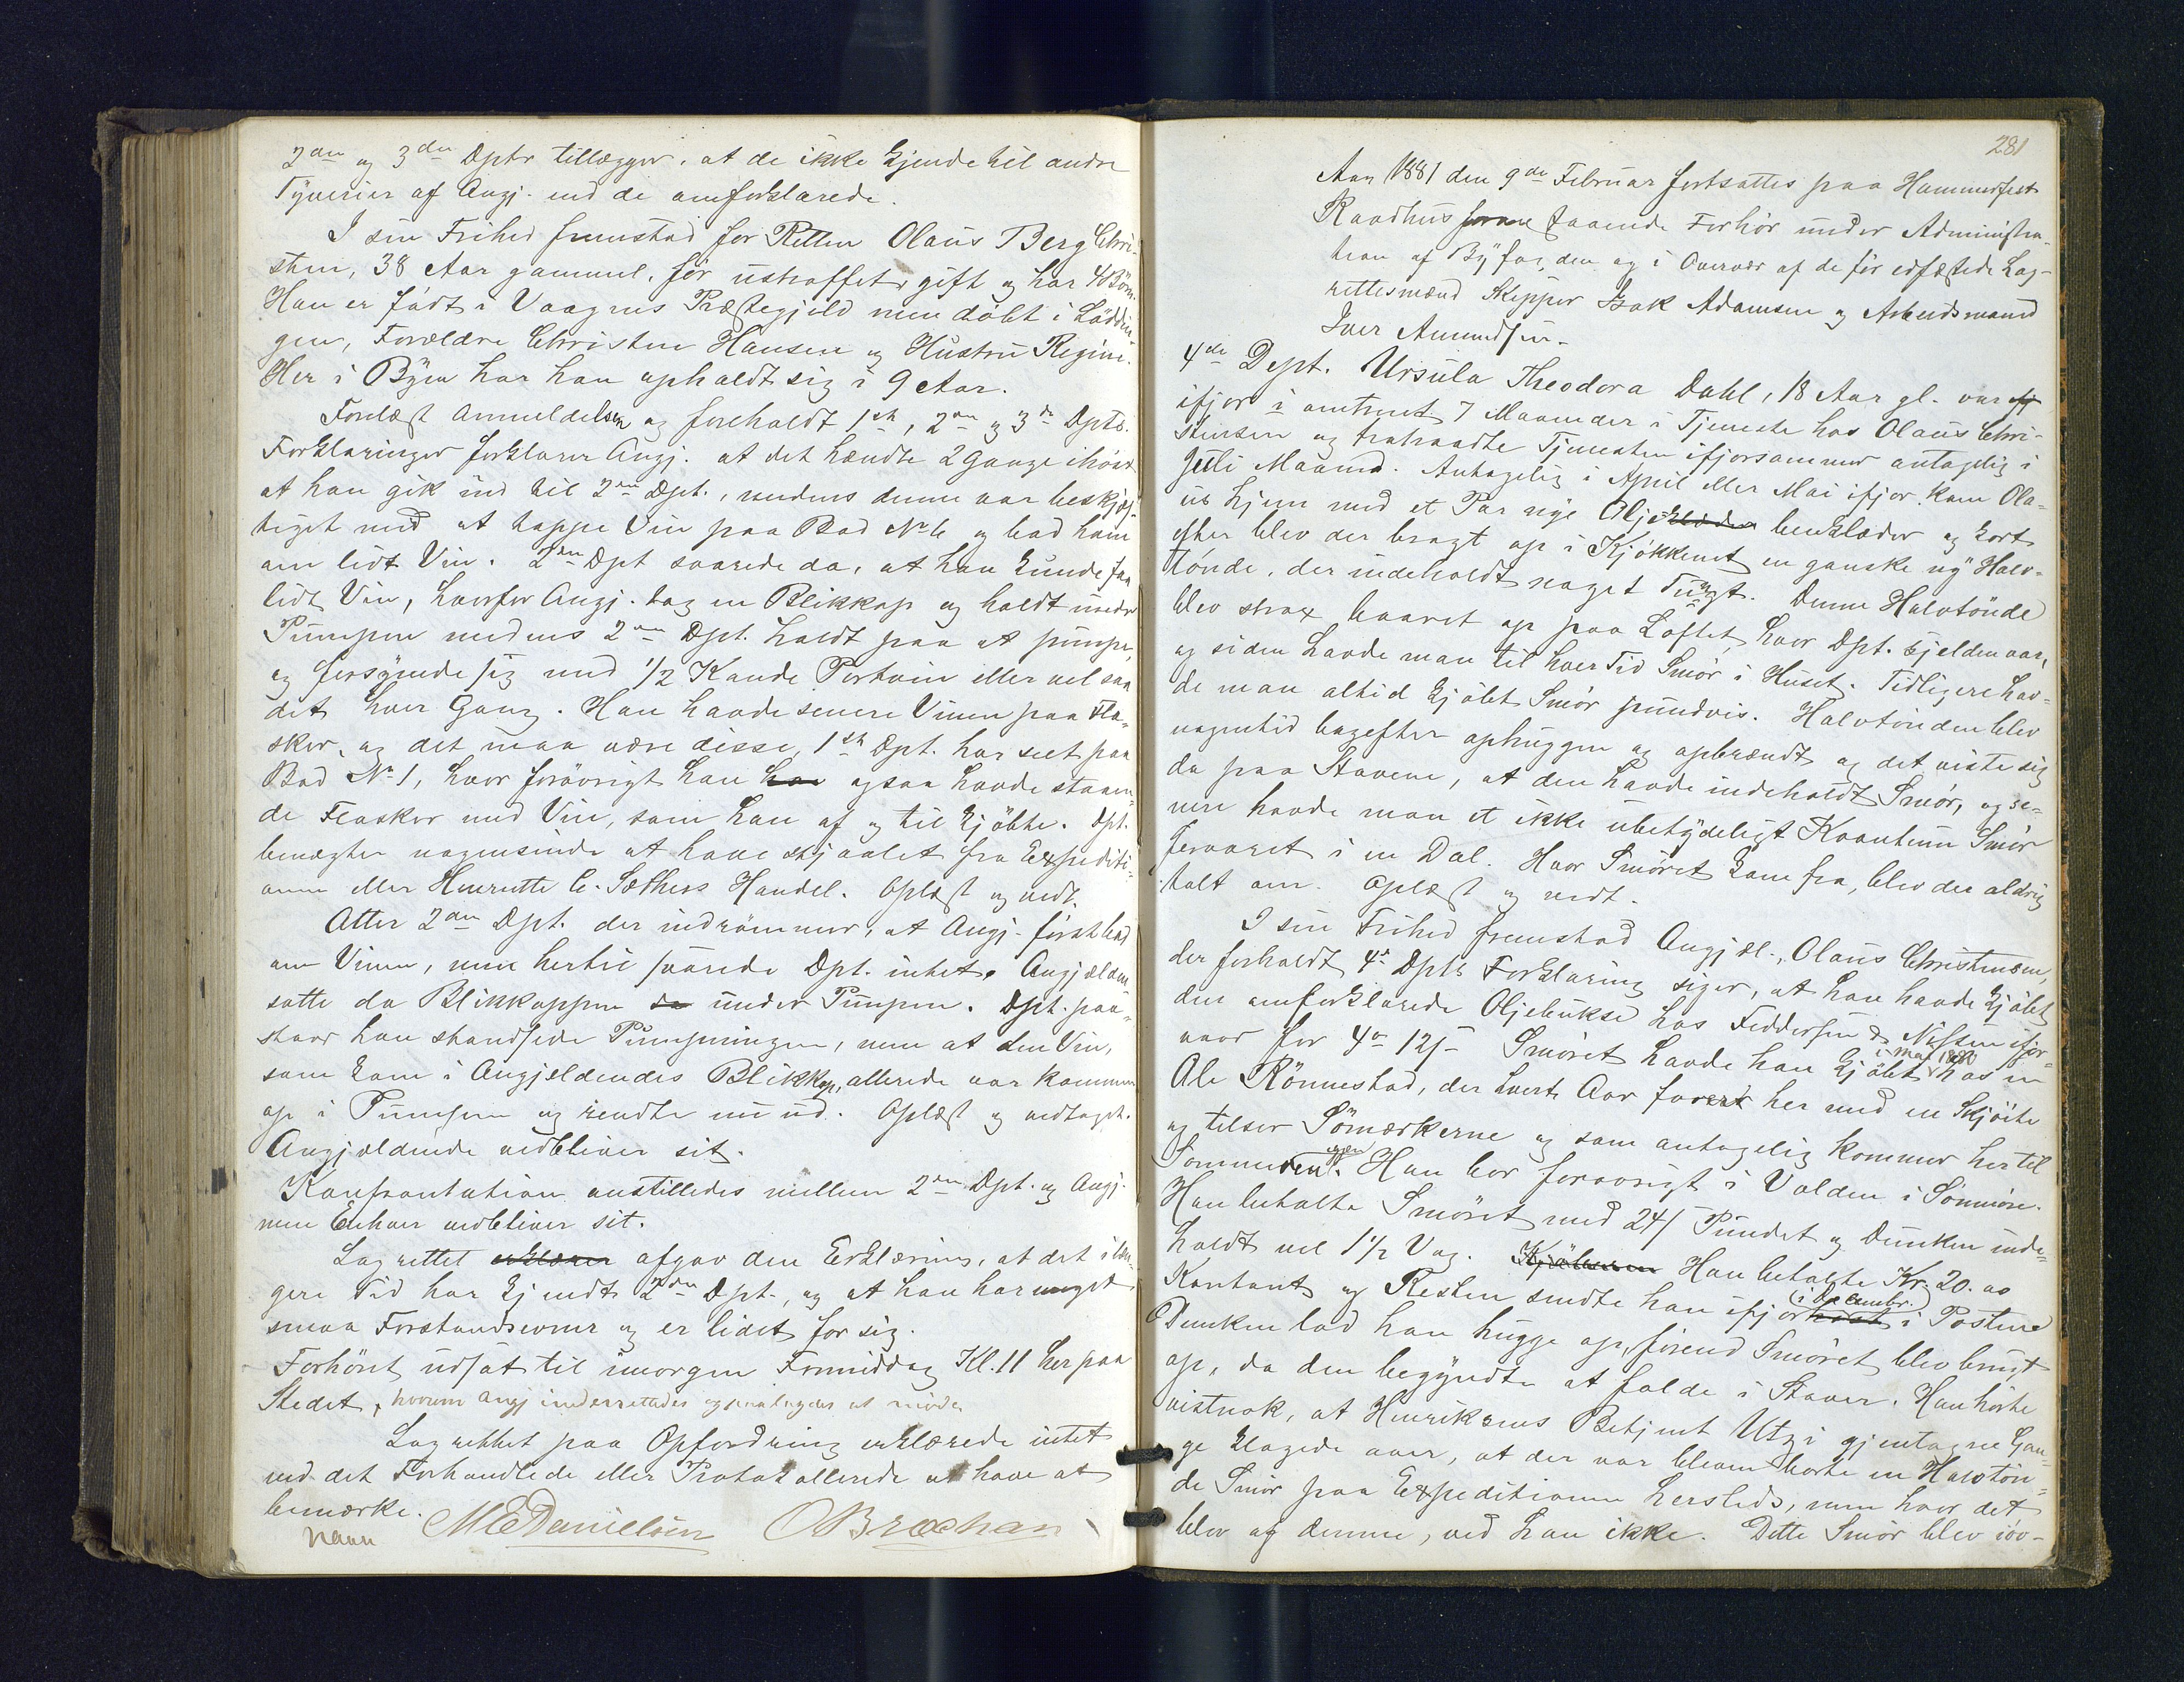 2den og 3die Dptr tillægger, at de ikke kjende til andre
Tyverier af Angj. end de omforklarede.
I sin Frihed fremstod for Retten Olaus Berg Chri-
stensen, 38 Aar gammel, før ustraffet, gift og har 4 Börn.
Han er födt i Vaagens Præstegjeld men døbt i Lödin-
gen, Forældre Christen Hansen og Hustru Regine.
Her i Byen har han opholdt sig i 9 Aar.
Forelæst Anmeldelsen og foreholdt 1ste, 2den og 3die Dpts.
Forklaringer forklarer Angj. at det hændte 2 Gange ihöst
at han gik ind til 2den Dpt., medens denne var beskjæf-
tiget med at tappe Vin paa Bod No 6 og bad ham
om lidt Vin. 2den Dpt svarede da, at han kunde faa
lidt Vin, hvorfor Angj. tog en Blikkop og holdt under
Pumpen medens 2den Dpt. holdt paa at pumpe,
og forsynede sig med 1/2 Kande Portvin eller vel saa
det hver Gang. Han havde senere Vinen paa Fla-
sker, og det maa være disse, 1ste Dpt. har seet paa
Bod No 1, hvor forövrigt han har ogsaa havde staaen-
de Flasker med Vin, som han af og til kjöbte. Dpt.
benægter nogensinde at have stjaalet fra Expediti-
onen eller Henriette C. Sæthers Handel. Oplæst og vedt.
Atter 2den Dpt. der indrömmer, at Angj. först bad
om Vinen, men hertil svarede Dpt. intet. Angjældende
satte da Blikkoppen da under Pumpen. Dpt. paa-
staar han standsede Pumpningen, men at den Vin,
som kom i Angjældendes Blikkop, allerede var kommen
op i Pumpen og rendte nu ud. Oplæst og vedtaget.
Angjældende vedbliver sit.
Konfrontation anstilledes mellem 2den Dpt. og Angj.
men Enhver vedbliver sit.
Lagrettet erklærer afgav den Erklæring, at det i læn-
gere Tid har kjendt 2den Dpt., og at han har meget
smaa Forstandsevner og er lidet for sig.
Forhöret udsat til imorgen Formiddag Kl. 11 her paa
Stedet, hvorom Angj underrettedes og paalagdes at möde
Lagrettet paa Opfordring erklærede intet
ved det Forhandlede eller Protokollerede at have at
bemærke.
Navn M E Danielsen O Brochan
281
Aar 1881 den 9de Februar fortsattes paa Hammerfest
Raadhus forane staaende Forhör under Administra-
tion af Byfogden og i Overvær af de för edfæstede Lag-
rettesmænd Skipper Isak Adamsen og Arbeidsmand
Iver Amundsen.
4de Dept. Ursula Theodora Dahl, 18 Aar gl. var
ifjor i omtrent 7 Maaneder i Tjeneste hos Olaus Chri-
stensen og fratraadte Tjenesten ifjorsommer antagelig i
Juli Maaned. Antagelig i April eller Mai ifjor kom Ola-
us hjem med et Par nye Oljeklæder benklæder og kort
efter blev der bragt op i Kjökkenet en ganske ny Halv-
tönde, der indeholdt noget Tungt. Denne Halvtönde
blev strax baaret op paa Loftet, hvor Dpt. sjelden var,
og siden havde man til hver Tid Smör i Huset. Tidligere hav-
de man altid kjöbt Smör pundvis. Halvtönden blev
nogentid bagefter ophuggen og opbrændt og det viste sig
da paa Stavene, at den havde indeholdt Smör, og se-
nere havde man et ikke ubetydeligt Kvantum Smör
forvaret i en Dal. Hvor Smöret kom fra, blev der aldrig
talt om. Oplæst og vedt.
I sin Frihed fremstod Angjæl., Olaus Christensen,
der forholdt 4de Dpts Forklaring siger, at han havde kjöbt
den omforklarede Oljebukse hos Feddersen & Nissen ifjor-
vaar for 4 or 12 s Smöret havde han kjöbt i Mai 1880 hos en
Ole Rönnestad, der hvert Aar farer her med en Skjöite
og tilser Sömærkerne og som antagelig kommer hertil
Sommeren igjen. Han bor forövrigt i Volden i Sönmöre.
Han betalte Smöret med 24 s Pundet og Dunken inde-
holdt vel 1 1/2 Vog. Kjöberen Han betalte Kr. 20.00
Kontant og Resten sendte han ifjor höst i December. i Posten
Dunken lod han hugge op, förend Smöret blev brugt
op, da den begyndte at falde i Staver. Han hörte
vistnok, at Henriksens Betjent Utzi gjentagne Gan-
ge klagede over, at der var bleven borte en Halvtön-
de Smör paa Expeditionen hersteds, men hvor det
blev af denne, ved han ikke. Dette Smör blev iöv-